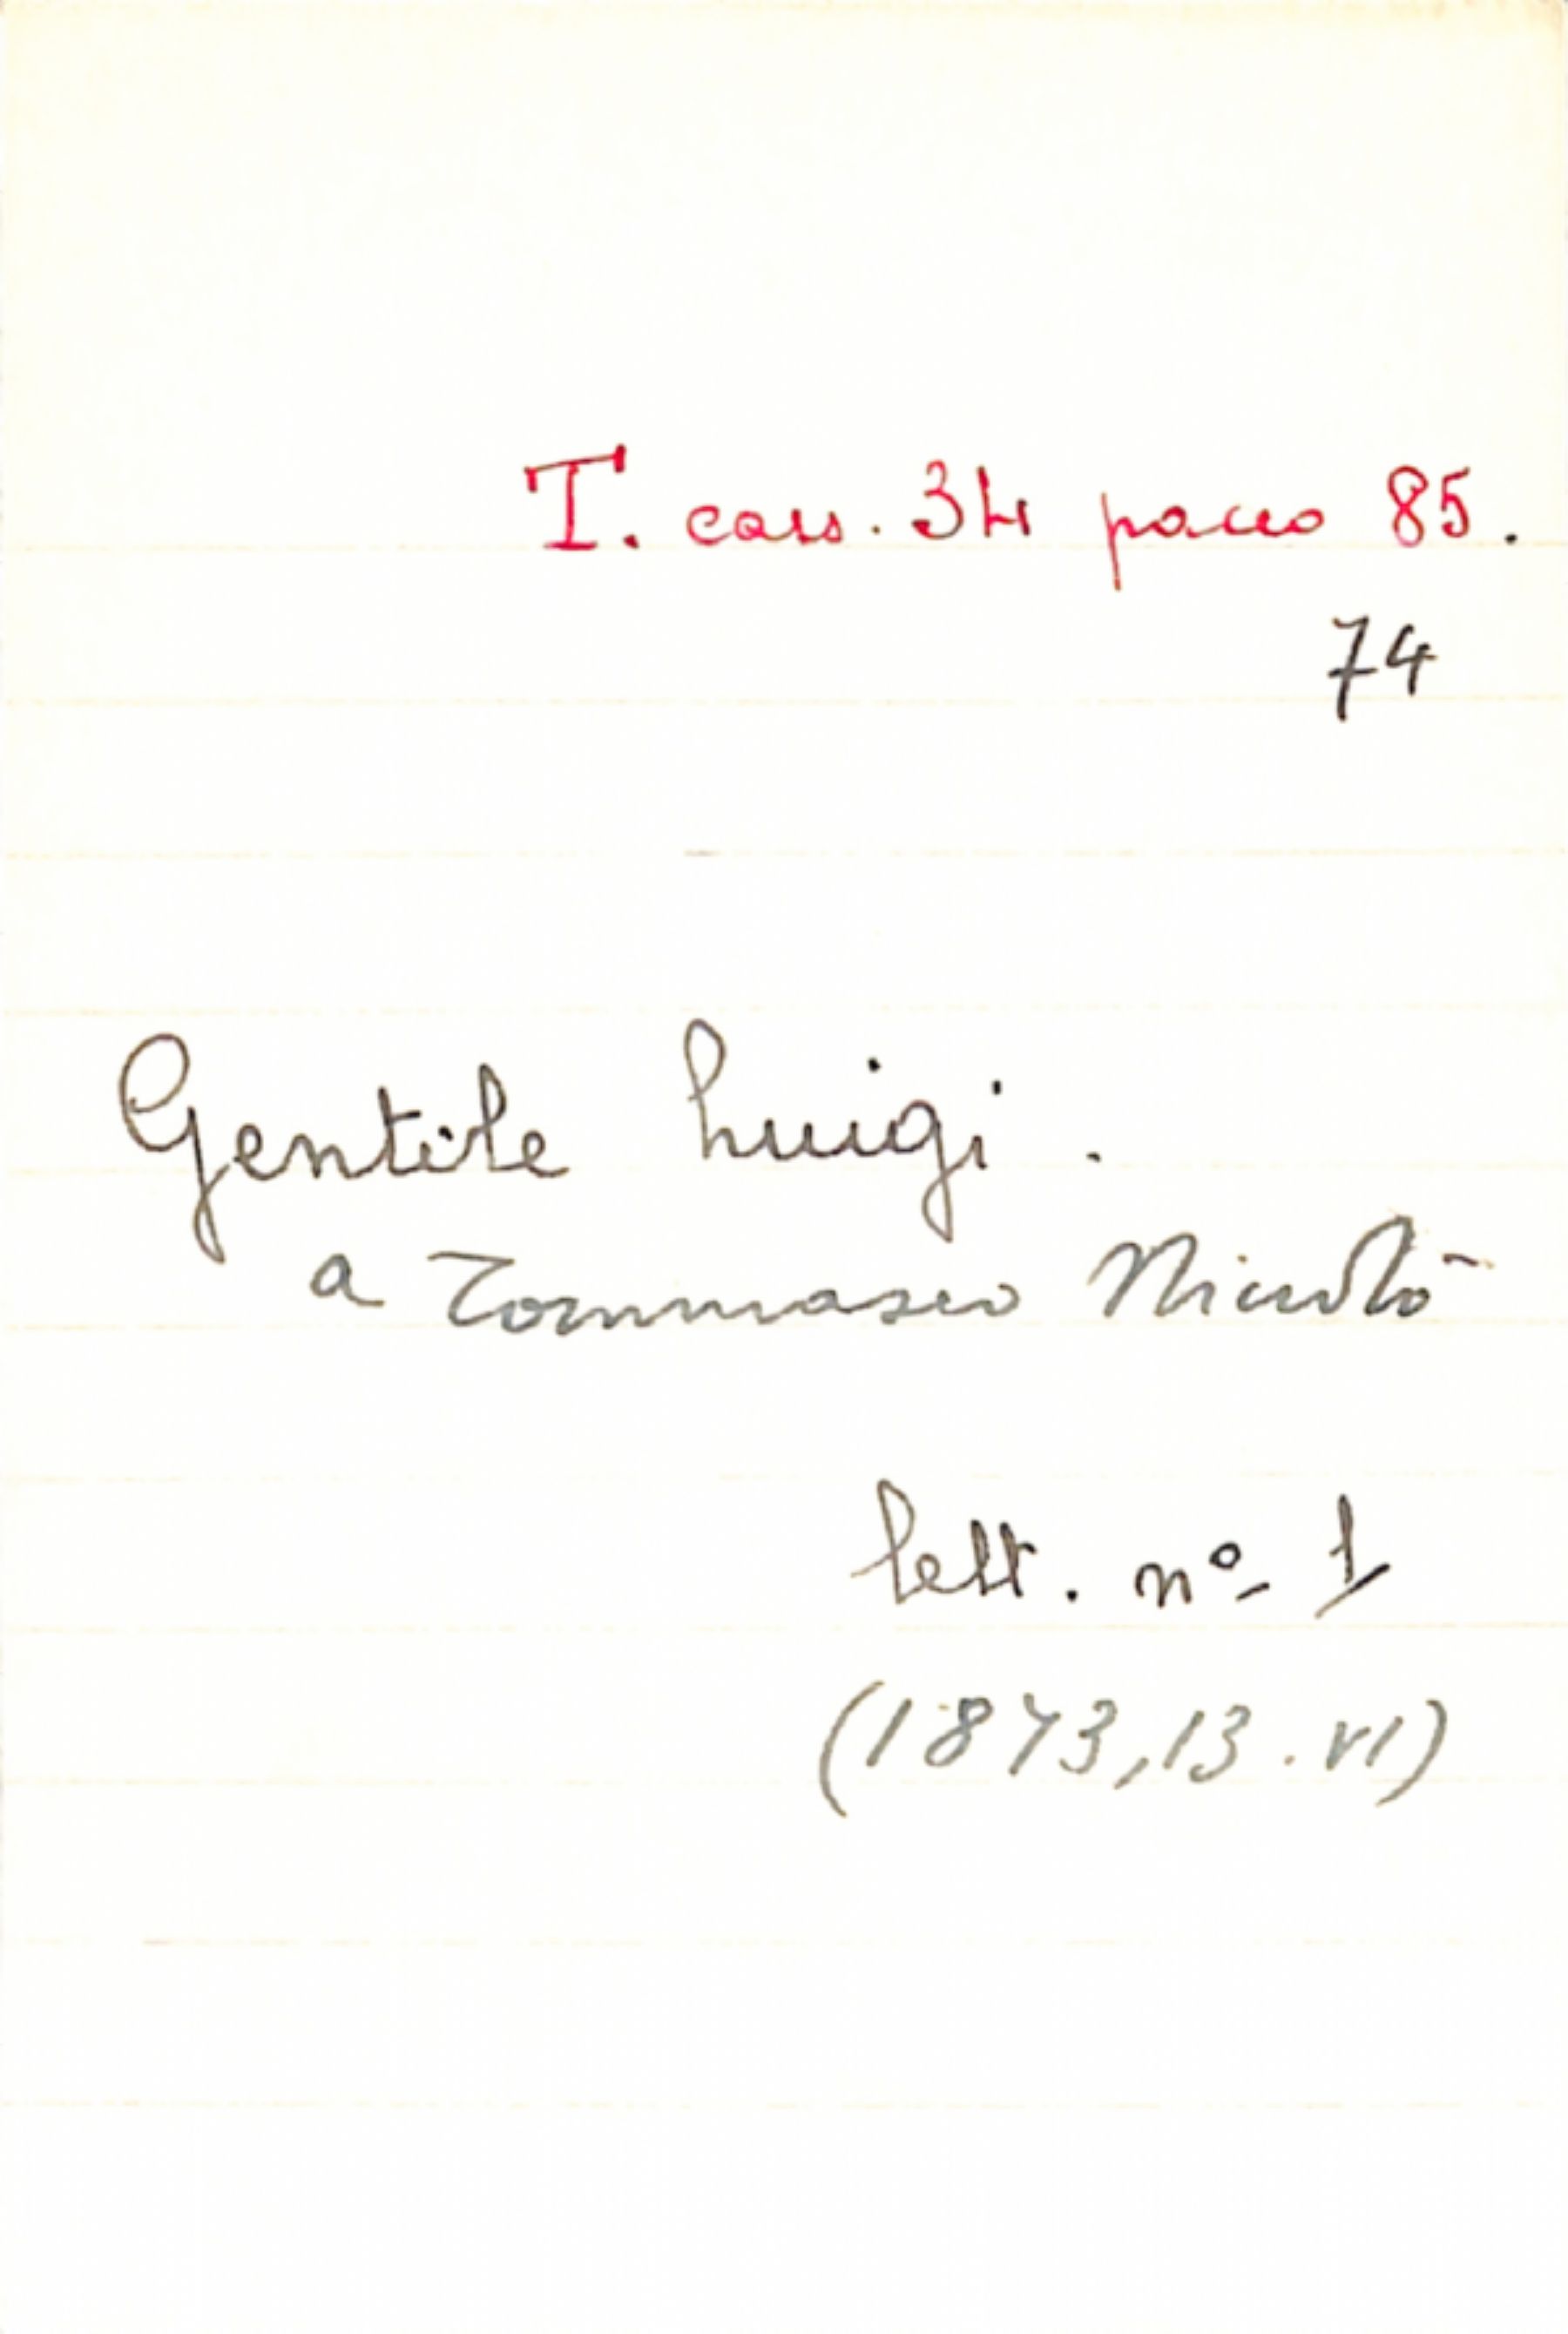 T. cass. 34 pacco 85.
74
Gentile Luigi.
a Tommaseo Nicolò
lett. nº 1
(1873, 13. VI)